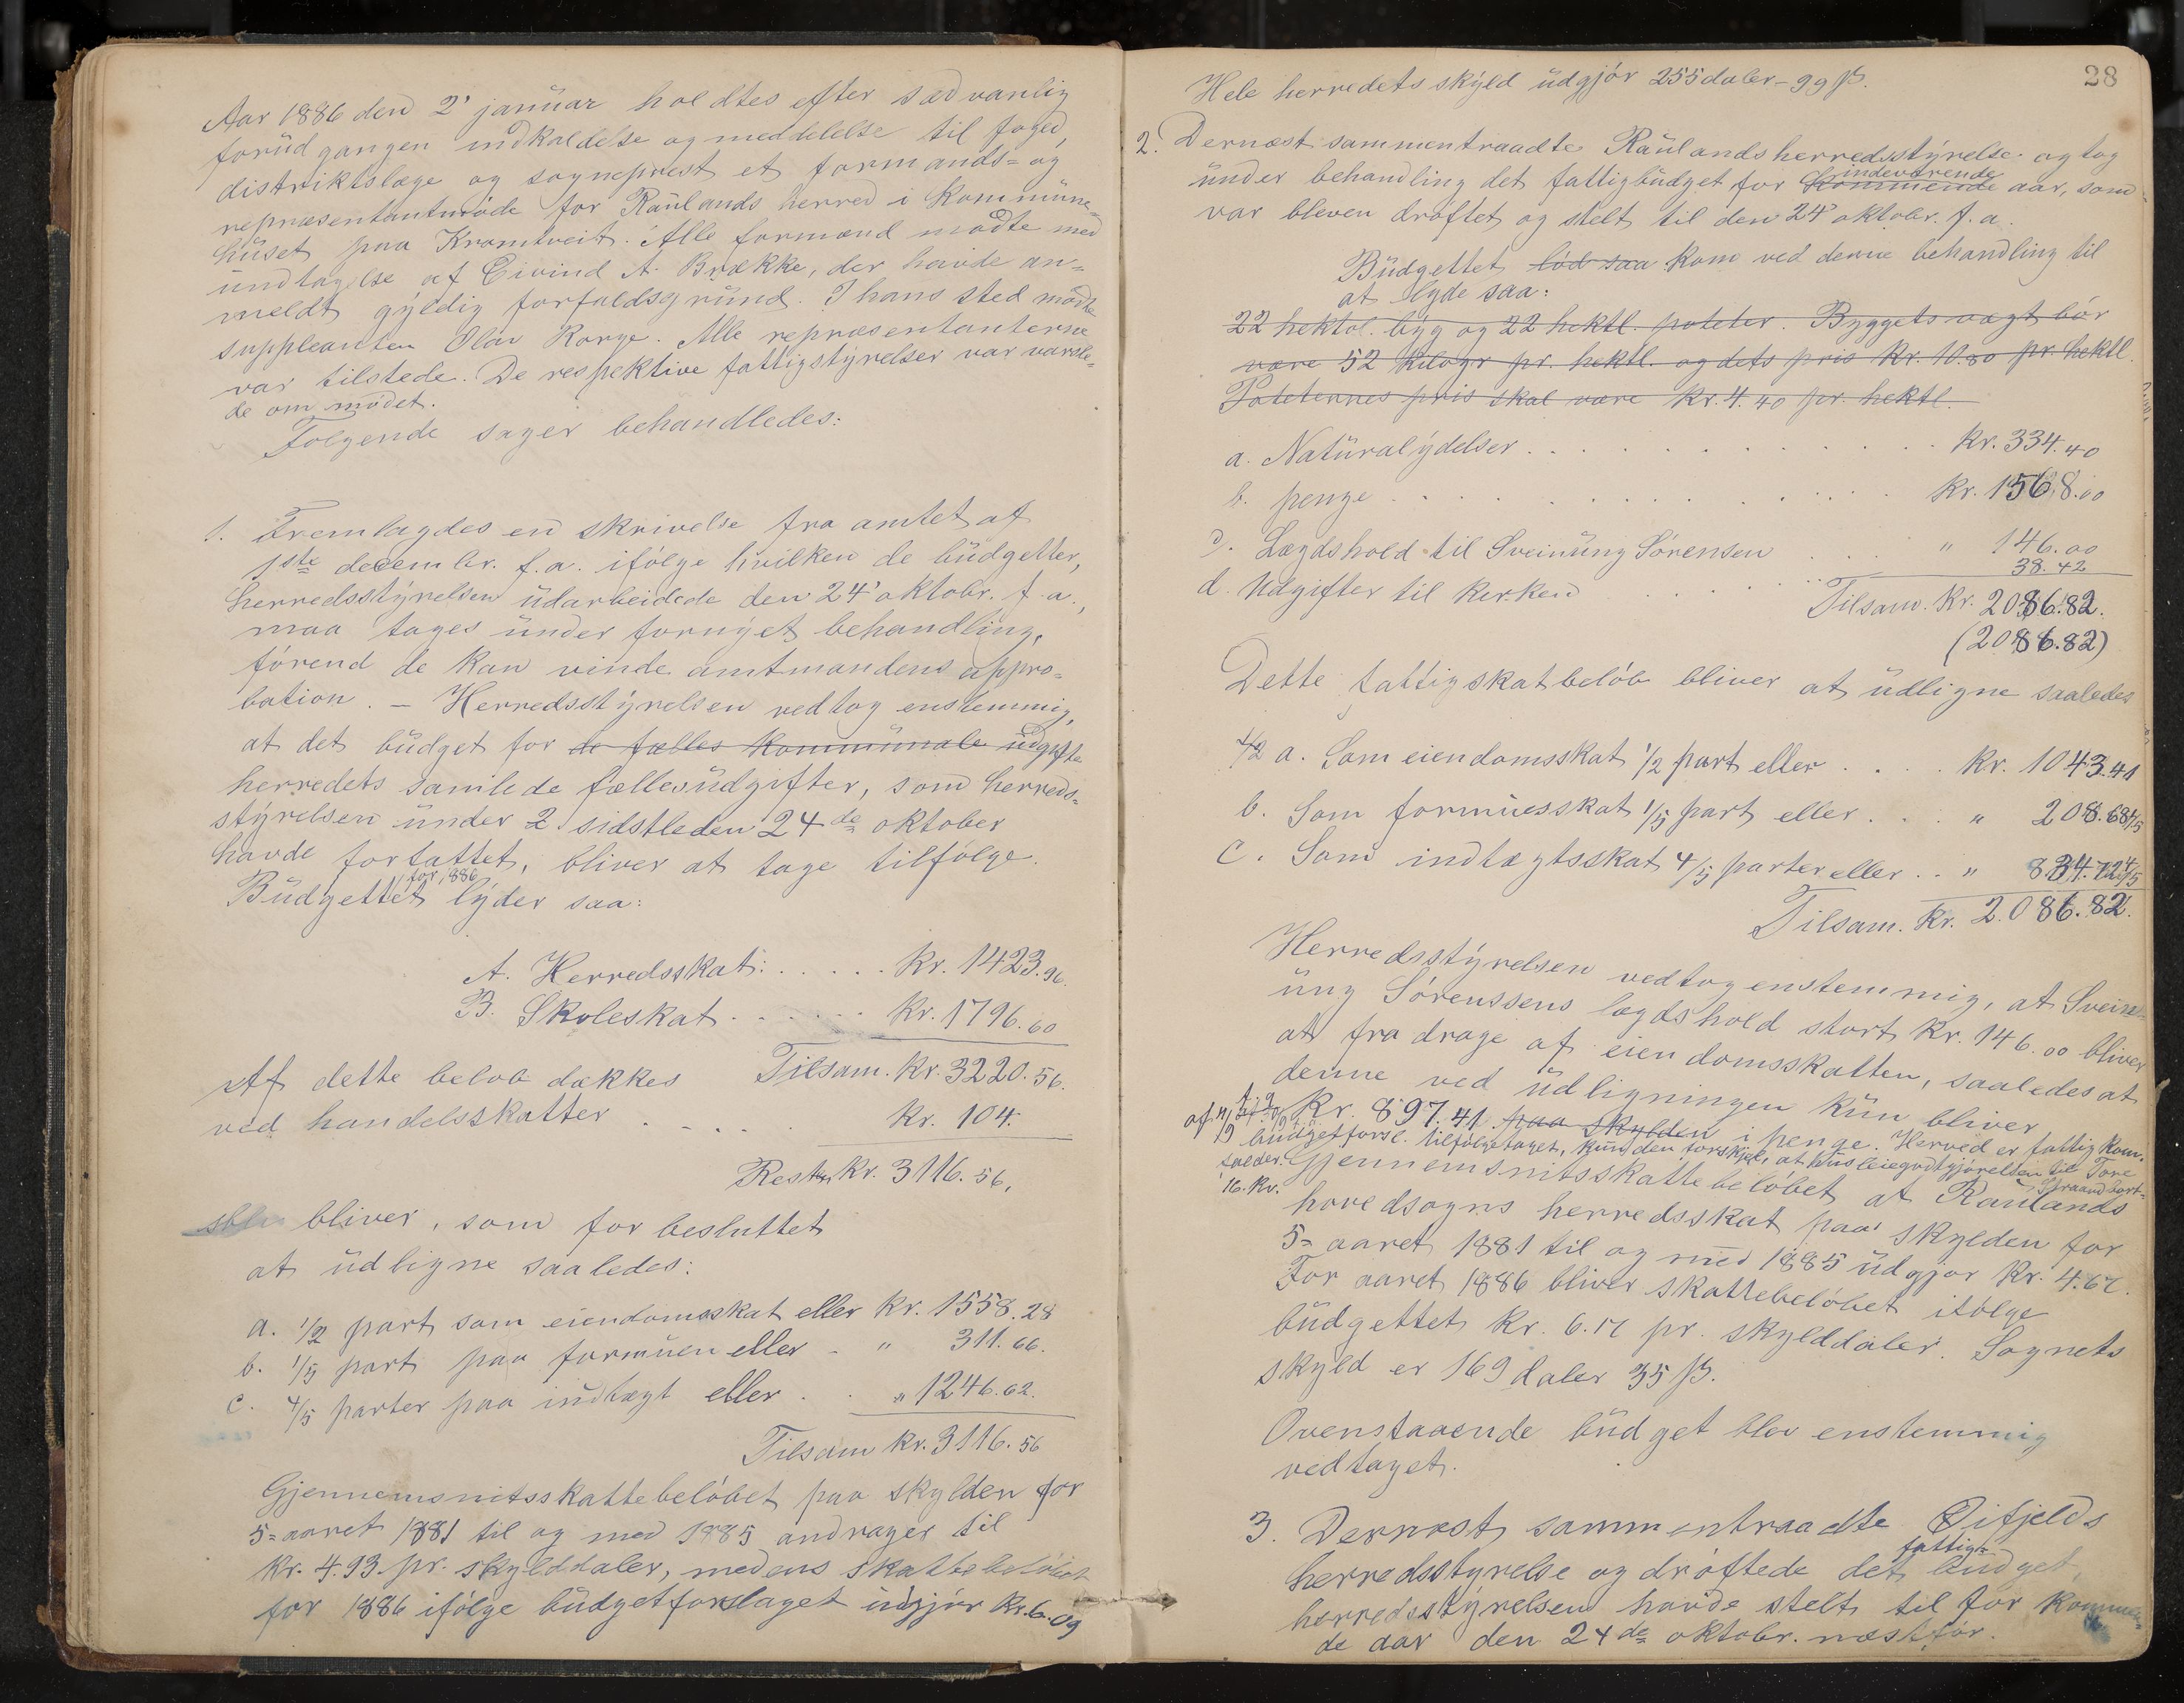 Aar 1886 den 2' januar holdtes efter sædvanlig
forudgangen indkaldelse og meddelelse til foged,
distriktslæge og sogneprest et formands- og
repræsentantmøde for Raulands herred i Kommune-
huset paa Kromtveit. Alle formænd mødte med
undtagelse af Eivind A. Brække, der havde an-
meldt gyldig forfaldsgrund. I hans sted mødte
suppleanten Olav Korge. Alle repræsentanterne
var tilstede. De respektive fattigstyrelser var varsle-
de om mødet.
Følgende sager behandledes:
1. Fremlagdes en skrivelse fra amtet af
1ste decembr. f.a. ifølge hvilken de budgetter,
herredsstyrelsen udarbeidede den 24' oktobr. f.a.,
maa tages under fornyet behandling,
førend de kan vinde amtmandens appro-
bation. – Herredsstyrelsen vedtog enstemmig,
at det budget for de fælles kommunale udgifte
herredets samlede fællesudgifter, som herreds-
styrelsen under 2. sidstleden 24de oktober
havde forfattet, bliver at tage tilfølge.
for 1886
Budgettet lyder saa:
A. Herredsskat: . . . . . Kr. 1423.96.
B. Skoleskat . . . . . . Kr. 1796.60
Af dette beløb dækkes Tilsam. Kr. 3220.56.
ved handelsskatter . . . . Kr. 104.
Rest Kr. 3116.56,
bliver, som før besluttet
at udligne saaledes:
a. 1/2 part som eiendomsskat eller Kr. 1558.28
b. 1/5 part paa formuen eller - " 311.66.
c. 4/5 parter paa indtægt eller . . " 1246.62.
Tilsam Kr. 3116.56
Gjennemsnitsskattebeløbet paa skylden for
5-aaret 1881 til og med 1885 andrager til
Kr. 4.93 pr. skylddaler, medens skattebeløbet
for 1886 ifølge budgetforslaget udgjør Kr. 6.09
28
Hele herredets skyld udgjør 255 daler – 99 ß.
2. Dernæst sammentraadte Raulands herredsstyrelse og tog
indeværende
under behandling det fattigbudget for kommende aar, som
var bleven drøftet og stelt til den 24' oktobr. f.a.
Budgettet lød saa kom ved denne behandling til
at lyde saa:
22 hektol. byg og 22 hektl. poteter. Byggets vægt bør
være 52 kilogr pr. hektl. og dets pris Kr. 10.80 pr. hektl.
Poteternes pris skal være Kr. 4.40 pr. hektl.
a. Naturalydelser . . . . . . . . Kr. 334.40
b. penge . . . . . . . . . . Kr. 1568.00
c. Lægdshold til Sveinung Sørensen . . . " 146.00
38.42
d. Udgifter til kirken . . . . . Tilsam. Kr. 2086.82.
(2086.82)
Dette fattigskatbeløb bliver at udligne saaledes
1/2 a. Som eiendomsskat 1/2 part eller . . . . Kr. 1043.41
b. Som formuesskat 1/5 part eller . . . " 208.68 1/5
c. Som indtægtsskat 4/5 parter eller . . " 834.72 4/5
Tilsam. Kr. 2.086.82.
Herredsstyrelsen vedtog enstemmig, at Svein-
ung Sørenssens lægdshold stort Kr. 146.00 bliver
at fradrage af eiendomsskatten, saaledes at
denne ved udligningen kun bliver
Kr. 897.41 paa skylden i penge. Herved er fattigkom.
budgetforsl. tilfølgetaget, kun den forskjel, at husleiegodtgjørelsen til Tore
Straand bort-
falder.
16. Kr.
Gjennemsnitsskattebeløbet af Raulands
hovedsogns herredsskat paa skylden for
5-aaret 1881 til og med 1885 udgjør Kr. 4.67.
For aaret 1886 bliver skattebeløbet ifølge
budgettet Kr. 6.17 pr. skylddaler. Sognets
skyld er 169 daler 35 ß.
Ovenstaaende budget blev enstemmig
vedtaget.
3. Dernæst sammentraadte Øifjelds
fattig-
herredsstyrelse og drøftede det budget,
herredsstyrelsen havde stelt til for kommen-
de aar den 24de oktobr. næstfør.